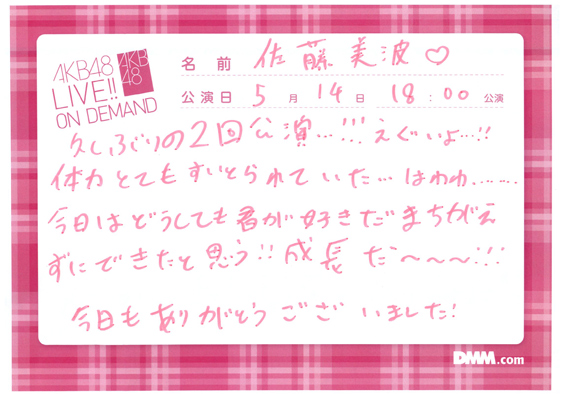 AKB48
LIVE!!
ON DEMAND
AKB
48
名前 佐藤美波♡
公演日 5月14日 18:00公演
久しぶりの2回公演…!!! えぐいよ…!!
体力とてもすいとられていた…はわわ……
今日はどうしても君が好きだまちがえ
ずにできたと思う!! 成長だ〜〜〜!!!
今日もありがとうございました!
DMM.com